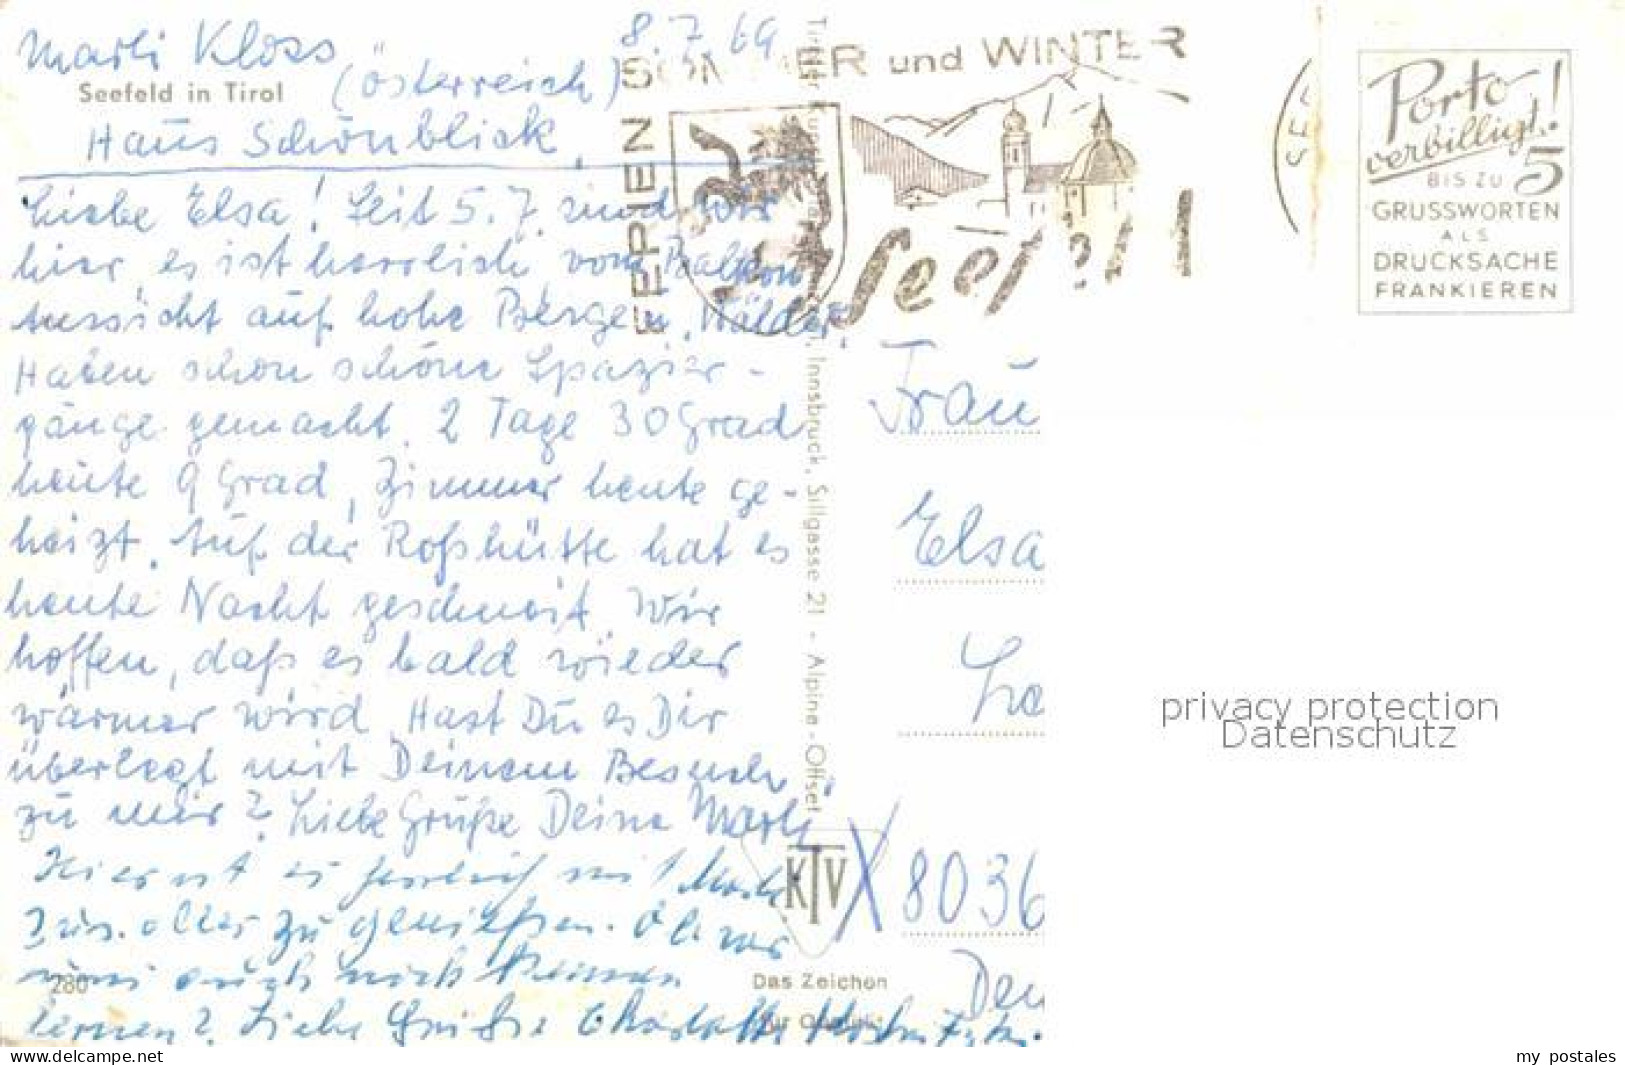 Marli Kloss 8.7.69
Seefeld in Tirol (Österreich)
Haus Schönblick
Liebe Elsa! Seit 5.7. sind wir
hier, es ist herrlich, vom Balkon
Aussicht auf hohe Bergen, Wälder.
Haben schon schöne Spazier-
gänge gemacht. 2 Tage 30 Grad
heute 9 Grad, Zimmer heute ge-
heizt. Auf der Roßhütte hat es
heute Nacht geschneit. Wir
hoffen, daß es bald wieder
wärmer wird. Hast Du es Dir
überlegt mit Deinem Besuch
zu mir? Liebe Grüße Deine Marli
Hier ist es herrlich mit Marli
alles zu genießen. Ob wir
uns auch noch kennen
lernen? Liebe Grüße Charlotte
280
FERIEN SOMMER und WINTER
Seefeld
SEE
Porto
verbilligt!
BIS ZU 5
GRUSSWORTEN
ALS
DRUCKSACHE
FRANKIEREN
Tiroler Kunstverlag, Innsbruck, Sillgasse 21 - Alpine-Offset
Frau
Elsa
KTV
X 8036
Das Zeichen
für Qualität
privacy protection
Datenschutz
my postales